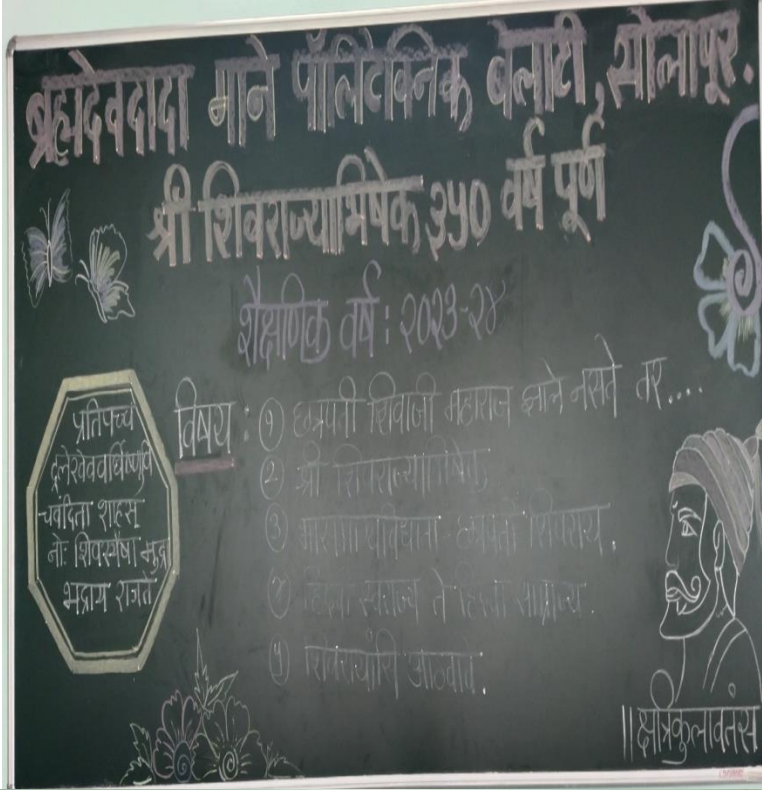 ब्रह्मदेवदादा माने पॉलिटेक्निक बेलाटी, सोलापूर.
श्री शिवराज्याभिषेक ३५० वर्ष पूर्ण
शैक्षणिक वर्ष : २०२३-२४
विषय : ① छत्रपती शिवाजी महाराज झाले नसते तर....
② श्री शिवराज्याभिषेक
③ छत्रपती शिवराय.
④ स्वराज्य ते साम्राज्य.
⑤ आठवावे.
प्रतिपच्चं
द्रलेखेववर्धिष्णुर्वि
श्ववंदिता शाहसू
नोः शिवस्यैषा मुद्रा
भद्राय राजते
||क्षत्रिकुलावतंस